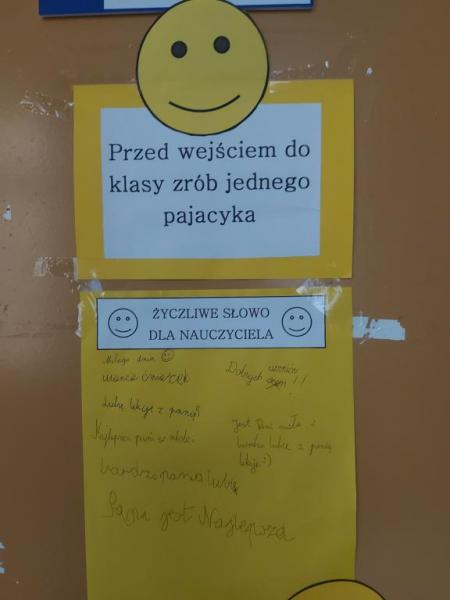 Przed wejściem do
klasy zrób jednego
pajacyka
ŻYCZLIWE SŁOWO
DLA NAUCZYCIELA
Miłego dnia
Lubię lekcje z panią!
Najlepsza pani w szkole.
bardzo pania lubię
Pani jest Najlepsza
Dobrych uczniów !!
Jest Pani miła i
bardzo lubię z panią
lekcje :)